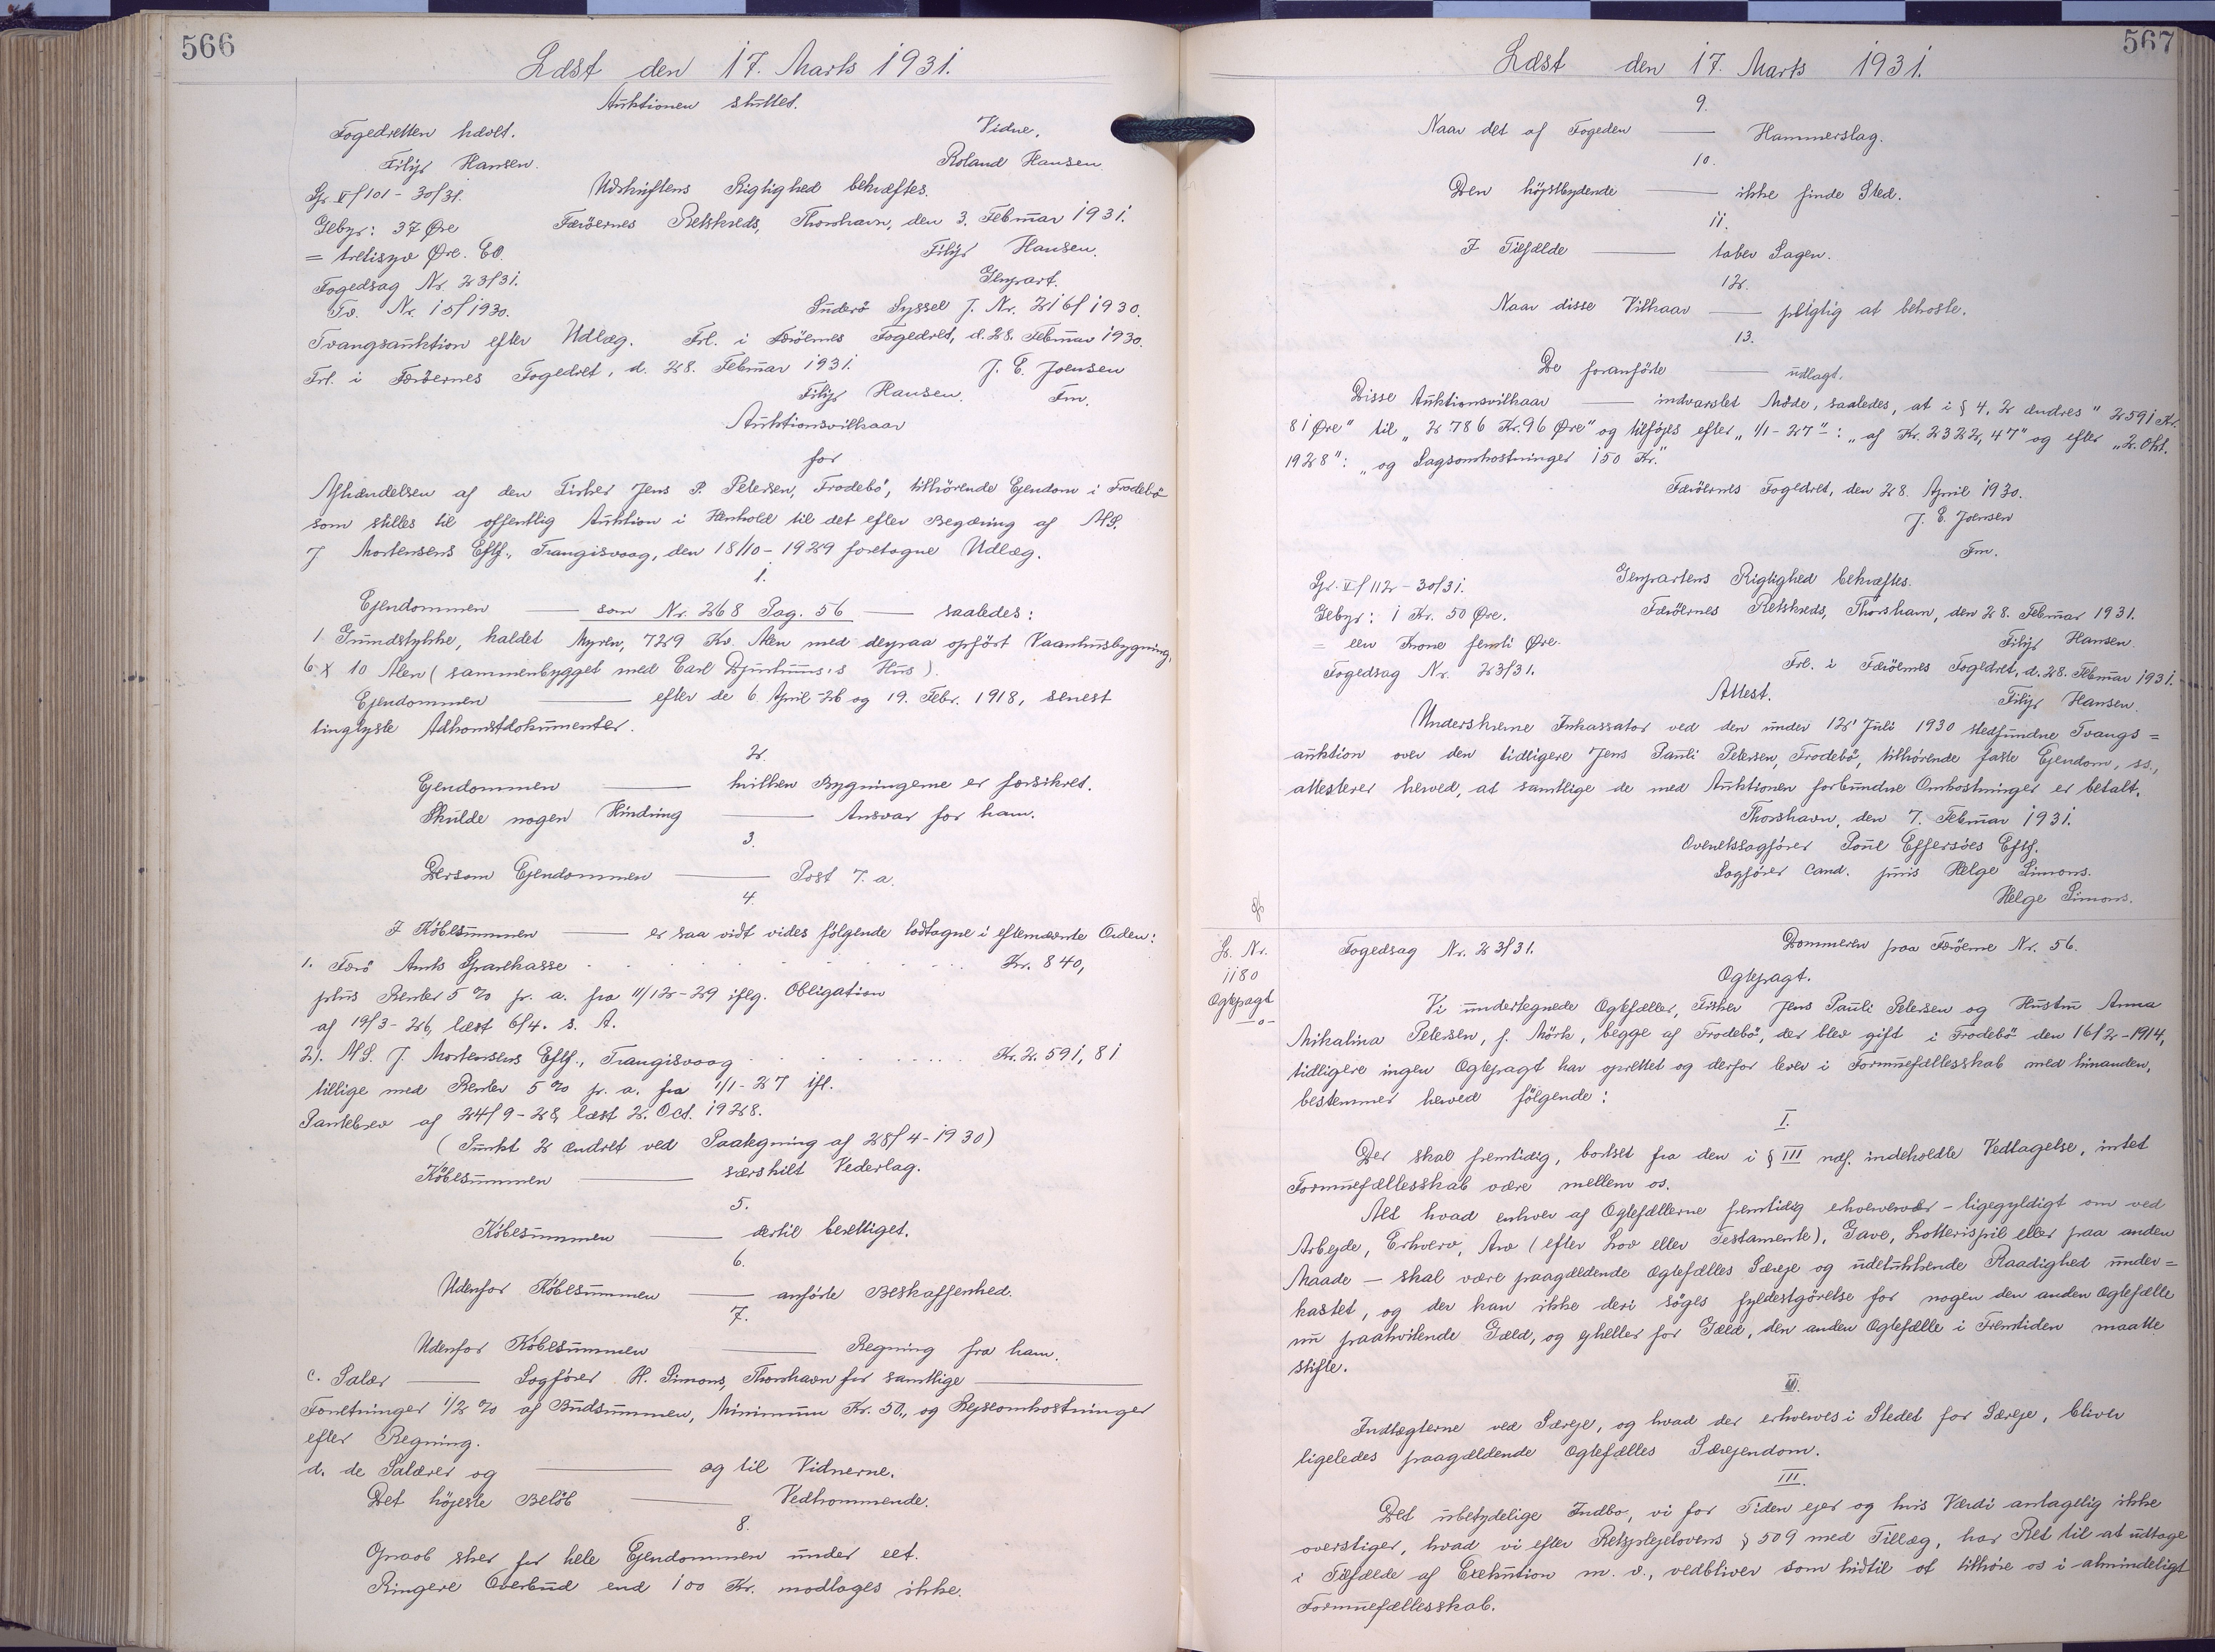 566
Læst den 17. Marts 1931.
Auktionen sluttet.
Fogedretten hævet. Vidne.
Filip Hansen. Roland Hansen
Gr. V/101 - 30/31. Udskriftens Rigtighed bekræftes.
Gebyr: 37 Øre Færöernes Retskreds, Thorshavn, den 3. Februar 1931.
= tretisyv Øre. Filip Hansen.
Fogedsag Nr. 23/31. Genpart.
Tv. Nr. 15/1930. Suderö Syssel J. Nr. 216/1930.
Tvangsauktion efter Udlæg. Frl. i Færöernes Fogedret, d. 28. Februar 1930.
Frl. i Færöernes Fogedret, d. 28. Februar 1931. J. E. Joensen
Filip Hansen. Fm.
Auktionsvilkaar
for
Afhændelsen af den Fisker Jens P. Petersen, Frodebö, tilhörende Ejendom i Frodebö
som stilles til offentlig Auktion i Henhold til det efter Begæring af A/S.
J Mortensens Eftf., Trangisvaag, den 18/10 - 1929 foretagne Udlæg.
1.
Ejendommen —— som Nr. 268 Pag. 56 —— saaledes:
1 Grundstykke, kaldet Myren, 729 Kv. Alen med derpaa opfört Vaaningshusbygning,
6 x 10 Alen (sammenbygget med Carl Djurhuus's Hus).
Ejendommen —— efter de 6. April -26 og 19. Febr. 1918, senest
tinglyste Adkomstdokumenter.
2.
Ejendommen —— hvilken Bygningerne er forsikret.
Skulde nogen Hindring —— Ansvar for ham.
3.
Dersom Ejendommen —— Post 7. a.
4.
I Købesummen —— er saa vidt vides følgende lodtagne i efternævnte Orden:
1. Færö Amts Sparekasse . . . . . . . . . . . Kr. 840,
plus Renter 5 % p. a. fra 11/12-29 iflg. Obligation
af 19/3-26, læst 6/4. s. A.
2). A/S. J. Mortensens Eftf., Trangisvaag . . . . . . Kr. 2.591,81
tillige med Renter 5 % p. a. fra 1/1-27 ifl.
Pantebrev af 24/9-28, læst 2. Oct. 1928.
(Punkt 2 ændret ved Paategning af 28/4-1930)
Købesummen —— særskilt Vederlag.
5.
Købesummen —— dertil berettiget.
6.
Udenfor Købesummen —— anførte Beskaffenhed.
7.
Udenfor Købesummen —— Regning fra ham.
c. Salær —— Sagfører H. Simons, Thorshavn for samtlige ——
Forretninger 1/2 % af Budsummen, Minimum Kr. 50., og Rejseomkostninger
efter Regning.
d. de Salærer og —— og til Vidnerne.
Det højeste Beløb —— Vedkommende.
8.
Opraab sker for hele Ejendommen under eet.
Ringere Overbud end 100 Kr. modtages ikke.
567
Læst den 17. Marts 1931.
9.
Naar det af Fogeden —— Hammerslag.
10.
Den højstbydende —— ikke finde Sted.
11.
I Tilfælde —— taber Sagen.
12.
Naar disse Vilkaar —— pligtig at bekoste.
13.
De foranførte —— udlagt.
Disse Auktionsvilkaar —— indvarslet Møde, saaledes, at i § 4, 2 ændres "2591 Kr.
81 Øre" til "2786 Kr. 96 Øre" og tilføjes efter "1/1-27": "af Kr. 2322,47" og efter "2. Okt.
1928": "og Sagsomkostninger 150 Kr."
Færöernes Fogedret, den 28. April 1930.
J. E. Joensen
Fm.
Gr. V/112 - 30/31. Genpartens Rigtighed bekræftes.
Gebyr: 1 Kr. 50 Øre. Færöernes Retskreds, Thorshavn, den 28. Februar 1931.
= een Krone femti Øre. Filip Hansen.
Fogedsag Nr. 23/31. Frl. i Færöernes Fogedret, d. 28. Februar 1931.
Attest. Filip Hansen.
Underskrevne Inkassator ved den under 12' Juli 1930 stedfundne Tvangs=
auktion over den tidligere Jens Pauli Petersen, Frodebö, tilhörende faste Ejendom, ss.,
attesterer herved, at samtlige de med Auktionen forbundne Omkostninger er betalt.
Thorshavn, den 7. Februar 1931.
Overretssagfører Poul Effersøes Eftf.
Sagfører cand. juris Helge Simons.
Helge Simons.
Gb. Nr. Fogedsag Nr. 23/31. Dommeren paa Færöerne Nr. 56.
1180 Ogtepagt.
Ogtepagt Vi undertegnede Ogtefæller, Fisker Jens Pauli Petersen og Hustru Anna
Mikalina Petersen, f. Mörk, begge af Frodebö, der blev gift i Frodebö den 16/2-1914,
tidligere ingen Ogtepagt har oprettet og derfor lever i Formuefællesskab med hinanden,
bestemmer herved følgende:
I.
Der skal fremtidig, bortset fra den i § III ndf. indeholdte Vedtagelse, intet
Formuefællesskab være mellem os.
Alt hvad enhver af Ogtefællerne fremtidig erhverver - ligegyldigt om ved
Arbejde, Erhverv, Arv (efter Lov eller Testamente), Gave, Lotterispil eller paa anden
Maade — skal være paagældende Ogtefælles Særeje og udelukkende Raadighed under=
kastet, og der kan ikke deri søges fyldestgörelse for nogen den anden Ogtefælle
nu paahvilende Gæld, og ejheller for Gæld, den anden Ogtefælle i Fremtiden maatte
stifte.
II.
Indtægterne ved Særeje, og hvad der erhverves i Stedet for Særeje, bliver
ligeledes paagældende Ogtefælles Særejendom.
III.
Det ubetydelige Indbo, vi for Tiden ejer og hvis Værdi antagelig ikke
overstiger, hvad vi efter Retsplejelovens § 509 med Tillæg, har Ret til at udtage
i Tilfælde af Exekution m. v., vedbliver som hidtil at tilhøre os i almindeligt
Formuefællesskab.